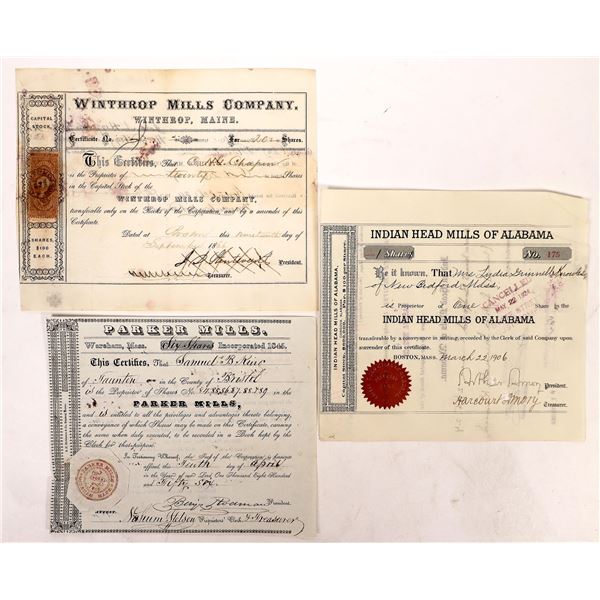 WINTHROP MILLS COMPANY,
WINTHROP, MAINE.
CAPITAL
STOCK
Certificate No. For 20 Shares.
This Certifies, That H. G. Chapin
is the Proprietor of Twenty Shares
in the Capital Stock of the
WINTHROP MILLS COMPANY,
transferable only on the Books of the Corporation, and by a surrender of this
Certificate.
Dated at this nineteenth day of
September 18
President.
Treasurer.
SHARES,
$100
EACH.
INDIAN HEAD MILLS OF ALABAMA
1 Share No. 175
Be it known, That Mrs Lydia Grinnell
of New Bedford Mass.
is Proprietor of One Share in the
INDIAN HEAD MILLS OF ALABAMA
transferable by a conveyance in writing, recorded by the Clerk of said Company upon
surrender of this certificate.
BOSTON, MASS. March 22, 1906
Arthur Amory President.
Harcourt Amory Treasurer.
CANCELLED
INDIAN HEAD MILLS OF ALABAMA,
PARKER MILLS,
Wareham, Mass. Six Shares Incorporated 1845.
This Certifies, That Samuel B. King
of Taunton in the County of Bristol
is the Proprietor of Shares No. in the
PARKER MILLS,
and is entitled to all the privileges and advantages thereto belonging,
a conveyance of which Shares may be made on this Certificate, causing
the same when duly executed, to be recorded in a Book kept by the
Clerk for that purpose.
In Testimony Whereof, the Seal of the Corporation is hereunto
affixed this Tenth day of April
in the Year of our Lord One Thousand Eight Hundred
and Fifty six
President
ATTEST.
Proprietors' Clerk & Treasurer